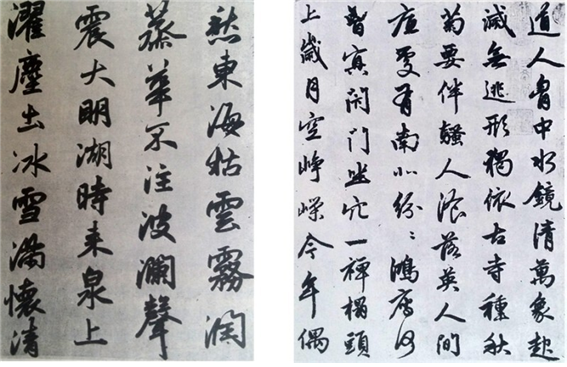 愁東海枯雲霧潤
蒸華不注波瀾聲
震大明湖時来泉上
濯塵土冰雪滿懷清
道人胷中水鏡清萬象起
滅無逃形獨依古寺種秋
菊要伴騷人飡落英人間
底處有南北紛〻鴻鴈何
曾冥閉门坐穴一禪榻頭
上歲月空崢嶸今年偶